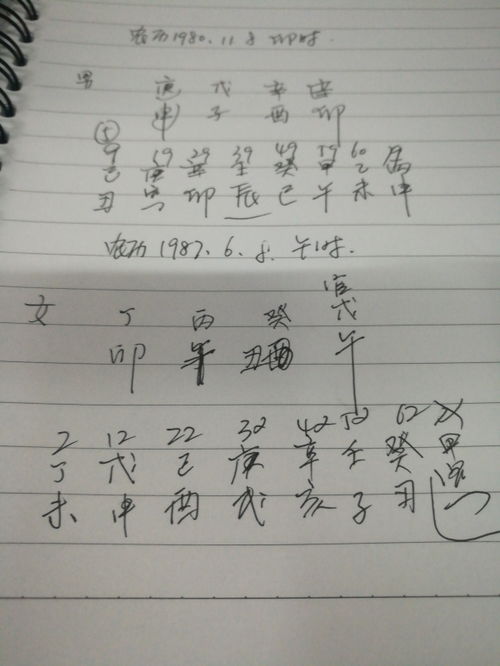 农历1980.11.8 卯时.
男 庚 戊 辛 辛
申 子 酉 卯
⑤
9 19 29 39 49 59 60
己 庚 辛 壬 癸 甲 乙 丙
丑 寅 卯 辰 巳 午 未 申
农历1987.6.8. 午时.
女 丁 丙 癸 戊
卯 午 丑 酉 午
2 12 22 32 42 52 62
丁 戊 己 庚 辛 壬 癸 甲
未 申 酉 戌 亥 子 丑 寅